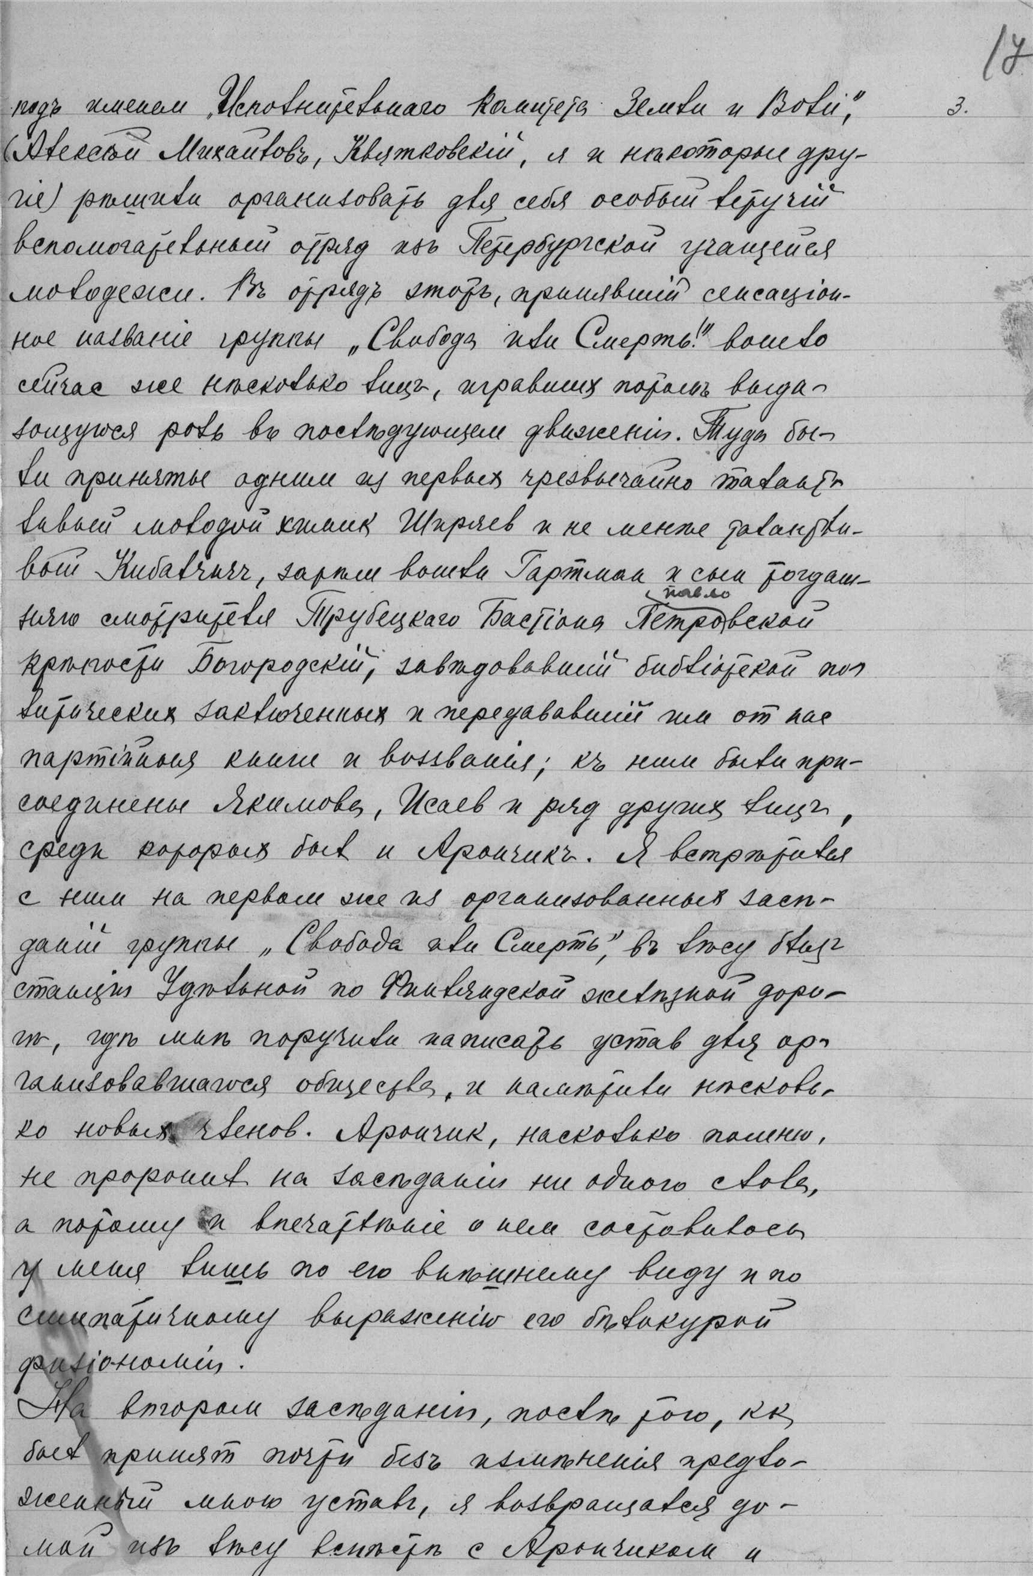 17
подъ именем „Исполнительнаго Комитета Земли и Воли“,
3.
(Алексѣй Михайловъ, Квятковскій, я и нѣкоторые дру-
гіе) рѣшили организовать для себя особый летучій
вспомогательный отряд изъ Петербургской учащейся
молодежи. Въ отрядъ этотъ, принявшій сенсаціон-
ное названіе группы „Свобода или Смерть!“ вошло
сейчас же нѣсколько лицъ, игравших потомъ выда-
ющуюся роль въ послѣдующем движеніи. Туда бы-
ли приняты одним из первых чрезвычайно талант-
ливый молодой химик Ширяев и не менѣе талантли-
вый Кибальчич, затѣм вошли Гартман и сын тогдаш-
павло
няго смотрителя Трубецкаго Бастіона Петровской
крѣпости Богородскій, завѣдовавшій библіотекой по-
литических заключенных и передававшій им от нас
партійныя книги и воззванія; къ ним были при-
соединены Якимова, Исаев и ряд других лицъ,
среди которых был и Арончикъ. Я встрѣтился
с ним на первом же из организованных засѣ-
даній группы „Свобода или Смерть“, въ лѣсу близ
станціи Удѣльной по Финляндской желѣзной доро-
гѣ, гдѣ мнѣ поручили написать устав для ор-
ганизовавшагося общества, и намѣтили нѣсколь-
ко новых членов. Арончик, насколько помню,
не проронил на засѣданіи ни одного слова,
а потому и впечатлѣніе о нем составилось
у меня лишь по его внѣшнему виду и по
симпатичному выраженію его бѣлокурой
физіономіи.
На втором засѣданіи, послѣ того, кк
был принят почти безъ измѣненія предло-
женный мною уставъ, я возвращался до-
мой изъ лѣсу вмѣстѣ с Арончиком и